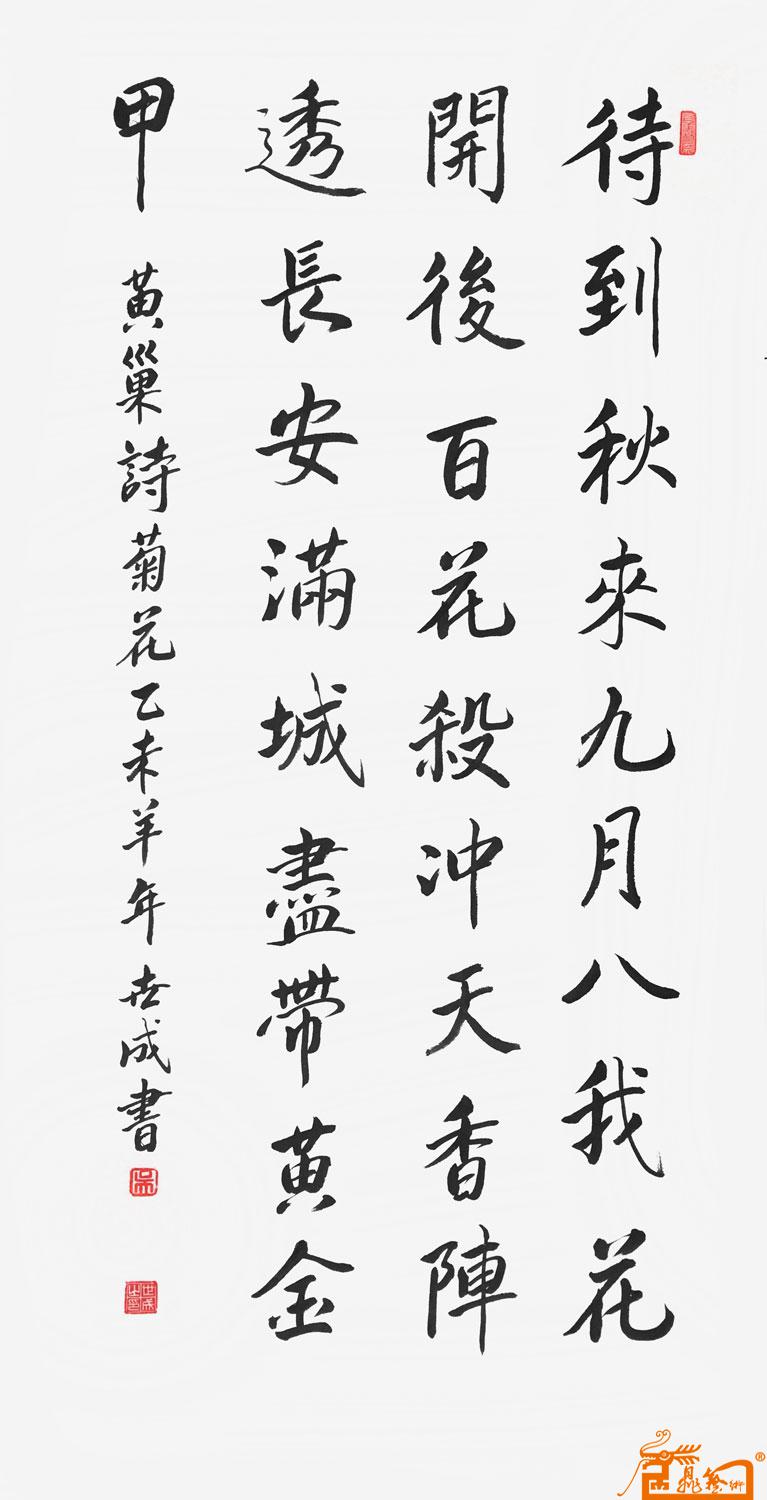 待到秋來九月八我花
開後百花殺沖天香陣
透長安滿城盡帶黃金
甲
黃巢詩菊花乙未羊年 世成書
吴
世成之印